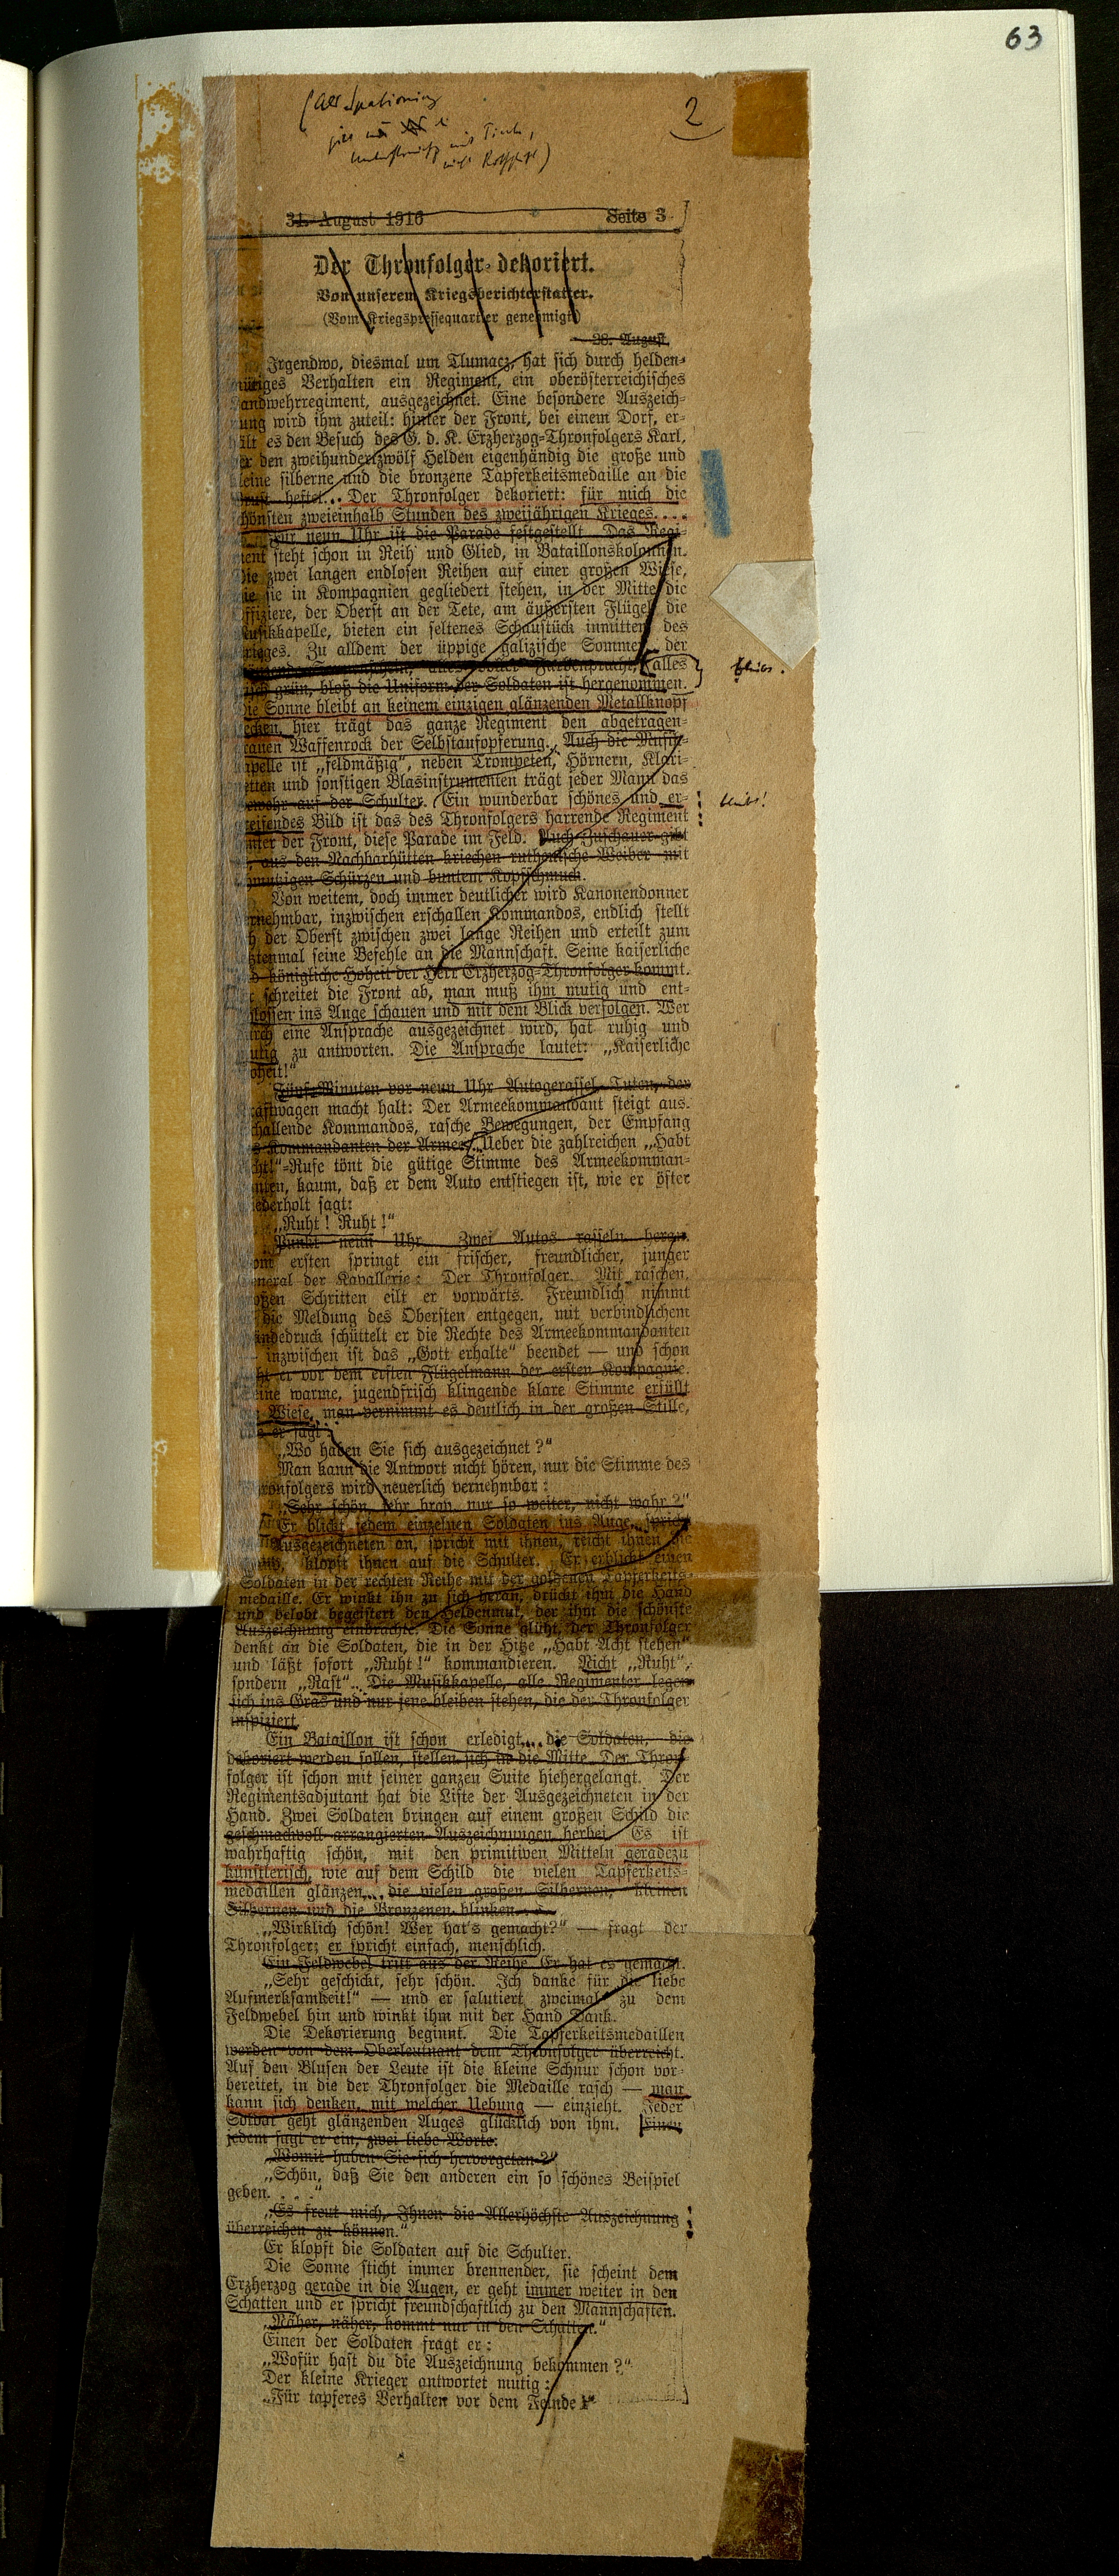 63
2
31. August 1916 Seite 3
Der Thronfolger dekoriert.
Von unserem Kriegsberichterstatter.
(Vom Kriegspressequartier genehmigt)
28. August.
Irgendwo, diesmal um Tlumacz, hat sich durch helden-
mütiges Verhalten ein Regiment, ein oberösterreichisches
Landwehrregiment, ausgezeichnet. Eine besondere Auszeich-
nung wird ihm zuteil: hinter der Front, bei einem Dorf, er-
hält es den Besuch des G. d. K. Erzherzog-Thronfolgers Karl,
der den zweihundertzwölf Helden eigenhändig die große und
kleine silberne und die bronzene Tapferkeitsmedaille an die
Brust heftet... Der Thronfolger dekoriert: für mich die
schönsten zweieinhalb Stunden des zweijährigen Krieges....
neun Uhr ist die Parade festgestellt. Das Regi-
ment steht schon in Reih' und Glied, in Bataillonskolonnen.
Die zwei langen endlosen Reihen auf einer großen Wiese,
wie sie in Kompagnien gegliedert stehen, in der Mitte die
Offiziere, der Oberst an der Tete, am äußersten Flügel die
Musikkapelle, bieten ein seltenes Schaustück inmitten des
Krieges. Zu alldem der üppige galizische Sommer, der
Farbenpracht, alles
grün, bloß die Uniform der Soldaten ist hergenommen.
Die Sonne bleibt an keinem einzigen glänzenden Metallknopf
stecken, hier trägt das ganze Regiment den abgetragen-
grauen Waffenrock der Selbstaufopferung. Auch die Musik-
kapelle ist „feldmäßig“, neben Trompeten, Hörnern, Klari-
netten und sonstigen Blasinstrumenten trägt jeder Mann das
Gewehr auf der Schulter. Ein wunderbar schönes und er-
greifendes Bild ist das des Thronfolgers harrende Regiment
hinter der Front, diese Parade im Feld. Auch Zuschauer gibt
aus den Nachbarhütten kriechen ruthenische Weiber mit
schmutzigen Schürzen und buntem Kopfschmuck.
Von weitem, doch immer deutlicher wird Kanonendonner
vernehmbar, inzwischen erschallen Kommandos, endlich stellt
sich der Oberst zwischen zwei lange Reihen und erteilt zum
letztenmal seine Befehle an die Mannschaft. Seine kaiserliche
und königliche Hoheit der Herr Erzherzog-Thronfolger kommt.
schreitet die Front ab, man muß ihm mutig und ent-
schlossen ins Auge schauen und mit dem Blick verfolgen. Wer
durch eine Ansprache ausgezeichnet wird, hat ruhig und
mutig zu antworten. Die Ansprache lautet: „Kaiserliche
Hoheit!“
Fünf Minuten vor neun Uhr Autogerassel, Tuten, der
Kraftwagen macht halt: Der Armeekommandant steigt aus.
Schallende Kommandos, rasche Bewegungen, der Empfang
des Kommandanten der Armee. Ueber die zahlreichen „Habt
Acht!“-Rufe tönt die gütige Stimme des Armeekomman-
danten, kaum, daß er dem Auto entstiegen ist, wie er öfter
wiederholt sagt:
„Ruht! Ruht!“
Punkt neun Uhr. Zwei Autos rasseln heran.
Vom ersten springt ein frischer, freundlicher, junger
General der Kavallerie: Der Thronfolger. Mit raschen,
großen Schritten eilt er vorwärts. Freundlich nimmt
er die Meldung des Obersten entgegen, mit verbindlichem
Händedruck schüttelt er die Rechte des Armeekommandanten
— inzwischen ist das „Gott erhalte“ beendet — und schon
steht er vor dem ersten Flügelmann der ersten Kompagnie.
Seine warme, jugendfrisch klingende klare Stimme erfüllt
die Wiese, man vernimmt es deutlich in der großen Stille,
wie er sagt:
„Wo haben Sie sich ausgezeichnet?“
Man kann die Antwort nicht hören, nur die Stimme des
Thronfolgers wird neuerlich vernehmbar:
„Sehr schön, sehr brav, nur so weiter, nicht wahr?“
Er blickt jedem einzelnen Soldaten ins Auge, spricht
Ausgezeichneten an, spricht mit ihnen, reicht ihnen die
Hand, klopft ihnen auf die Schulter. Er erblickt einen
Soldaten in der rechten Reihe mit der goldenen Tapferkeits-
medaille. Er winkt ihn zu sich heran, drückt ihm die Hand
und belobt begeistert den Heldenmut, der ihm die schönste
Auszeichnung einbrachte. Die Sonne glüht, der Thronfolger
denkt an die Soldaten, die in der Hitze „Habt Acht stehen“
und läßt sofort „Ruht!“ kommandieren. Nicht „Ruht“,
sondern „Rast“. Die Musikkapelle, alle Regimenter legen
sich ins Gras und nur jene bleiben stehen, die der Thronfolger
inspiziert.
Ein Bataillon ist schon erledigt... die Soldaten, die
dekoriert werden sollen, stellen sich in die Mitte. Der Thron-
folger ist schon mit seiner ganzen Suite hiehergelangt. Der
Regimentsadjutant hat die Liste der Ausgezeichneten in der
Hand. Zwei Soldaten bringen auf einem großen Schild die
geschmackvoll arrangierten Auszeichnungen herbei. Es ist
wahrhaftig schön, mit den primitiven Mitteln geradezu
künstlerisch, wie auf dem Schild die vielen Tapferkeits-
medaillen glänzen... die vielen großen Silbernen, kleinen
Silbernen und die Bronzenen blinken...
„Wirklich schön! Wer hat's gemacht?“ — fragt der
Thronfolger; er spricht einfach, menschlich.
Ein Feldwebel tritt aus der Reihe. Er hat es gemacht.
„Sehr geschickt, sehr schön. Ich danke für die liebe
Aufmerksamkeit!“ — und er salutiert zweimal zu dem
Feldwebel hin und winkt ihm mit der Hand Dank.
Die Dekorierung beginnt. Die Tapferkeitsmedaillen
werden von dem Oberleutnant dem Thronfolger überreicht.
Auf den Blusen der Leute ist die kleine Schnur schon vor-
bereitet, in die der Thronfolger die Medaille rasch — man
kann sich denken, mit welcher Uebung — einzieht. Jeder
Soldat geht glänzenden Auges glücklich von ihm. Einen
jedem sagt er ein, zwei liebe Worte.
„Womit haben Sie sich hervorgetan?“
„Schön, daß Sie den anderen ein so schönes Beispiel
geben. . . .“
„Es freut mich, Ihnen die Allerhöchste Auszeichnung
überreichen zu können.“
Er klopft die Soldaten auf die Schulter.
Die Sonne sticht immer brennender, sie scheint dem
Erzherzog gerade in die Augen, er geht immer weiter in den
Schatten und er spricht freundschaftlich zu den Mannschaften.
„Näher, näher, kommt nur in den Schatten.“
Einen der Soldaten fragt er:
„Wofür hast du die Auszeichnung bekommen?“
Der kleine Krieger antwortet mutig:
„Für tapferes Verhalten vor dem Feinde!“